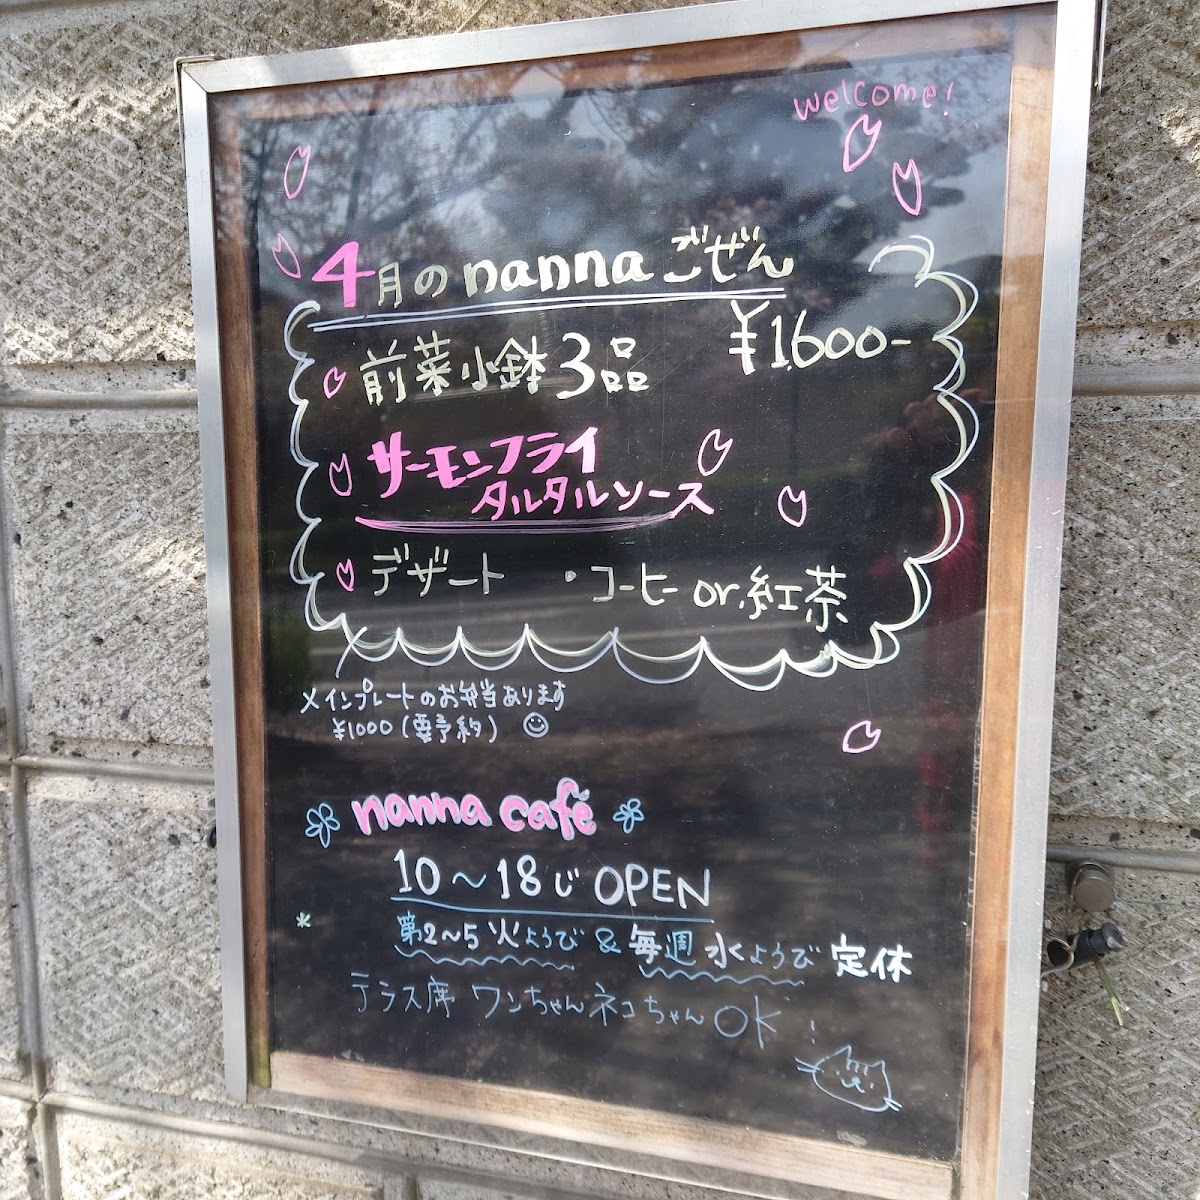 welcome!
4月のnannaごぜん
¥1,600-
前菜小鉢3品
サーモンフライ
タルタルソース
デザート ・コーヒー or.紅茶
メインプレートのお弁当あります
¥1000(要予約)
nanna café
10〜18じ OPEN
第2〜5火ようび & 毎週水ようび 定休
テラス席 ワンちゃんネコちゃんOK!